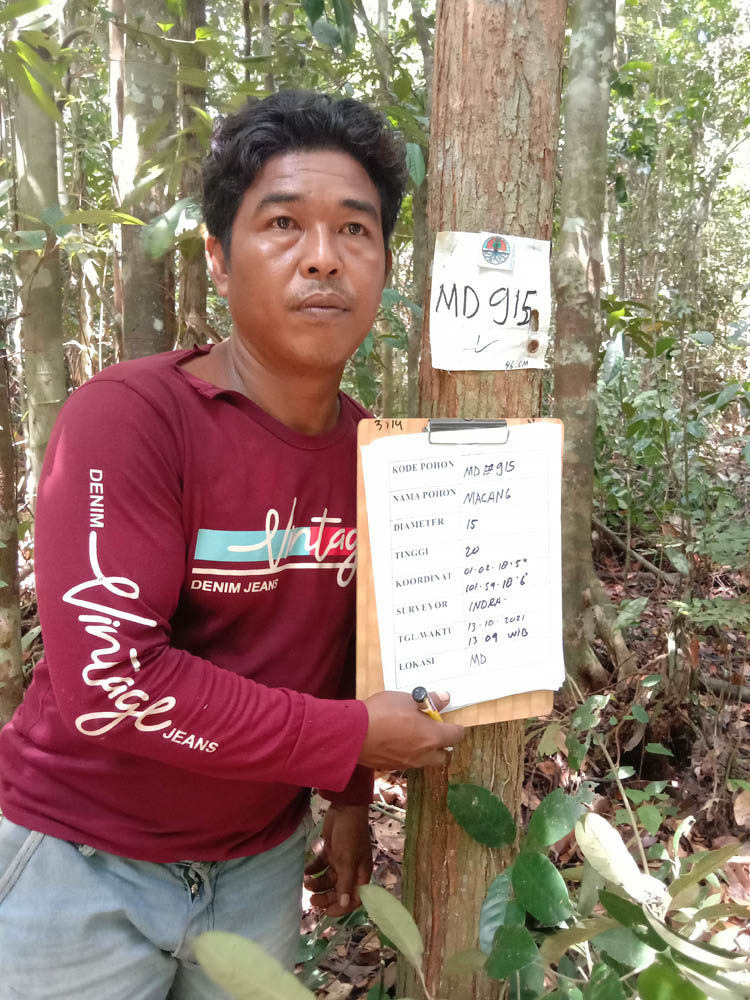 MD 915
46 CM
3314
KODE POHON MD 915
NAMA POHON MACANG
DIAMETER 15
TINGGI 20
KOORDINAT 01.02.18.5"
101.59.18.6"
SURVEYOR INDRA.
TGL/WAKTU 13.10.2021
13 09 WIB
LOKASI MD
Vintage
DENIM JEANS
DENIM
Vintage
JEANS